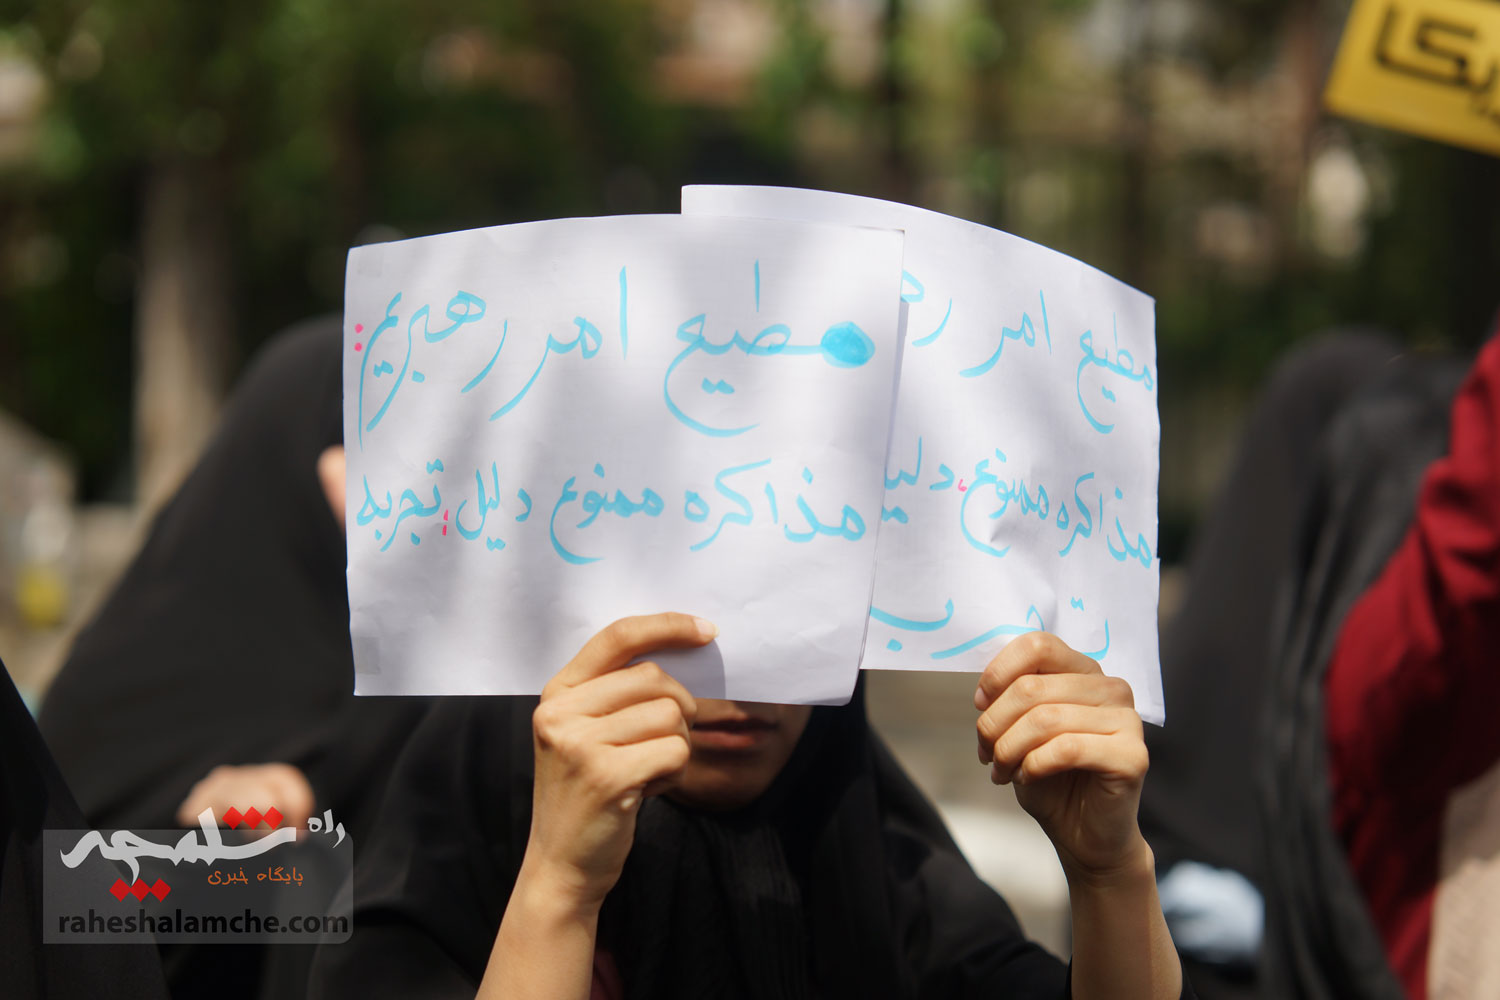 مطیع امر رهبریم:
مذاکره ممنوع دلیل؛ تجربه
مطیع امر ره
مذاکره ممنوع، دلیـ
راه شلمچه
پایگاه خبری
raheshalamche.com